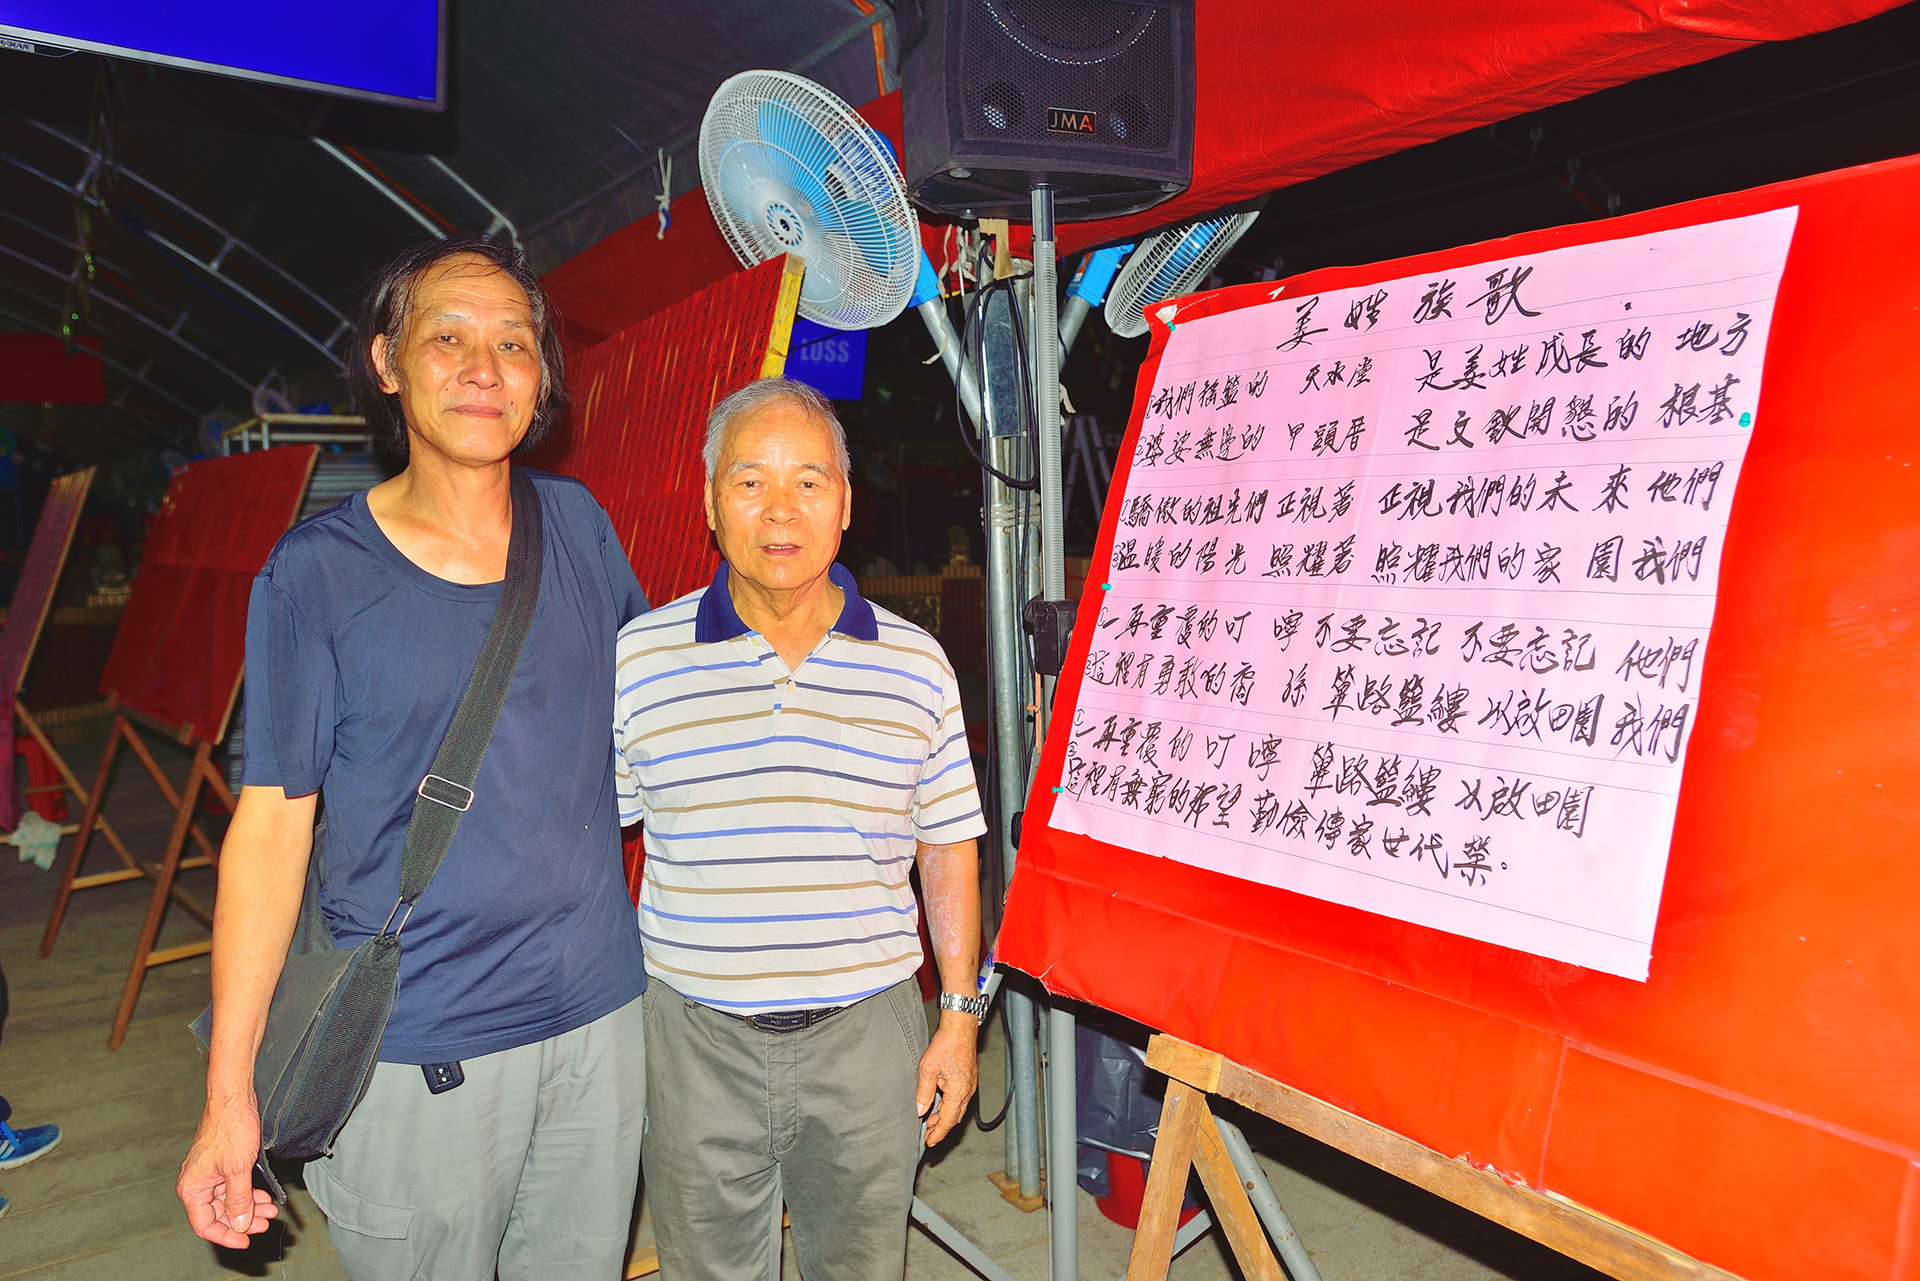 JMA
LOSS
姜姓族歌
①我們搖籃的 天水堂 是姜姓成長的 地方
②婆娑無邊的 甲頭厝 是文欽開懇的 根基
①驕傲的祖先們 正視著 正視我們的未 來 他們
②溫暖的陽光 照耀著 照耀我們的家 園 我們
①一再重覆的叮 嚀 不要忘記 不要忘記 他們
②這裡有勇敢的裔 孫 篳路籃縷 以啟田園 我們
①一再重覆的 叮 嚀 篳路籃縷 以啟田園
②這裡有無窮的希望 勤儉傳家世代榮。